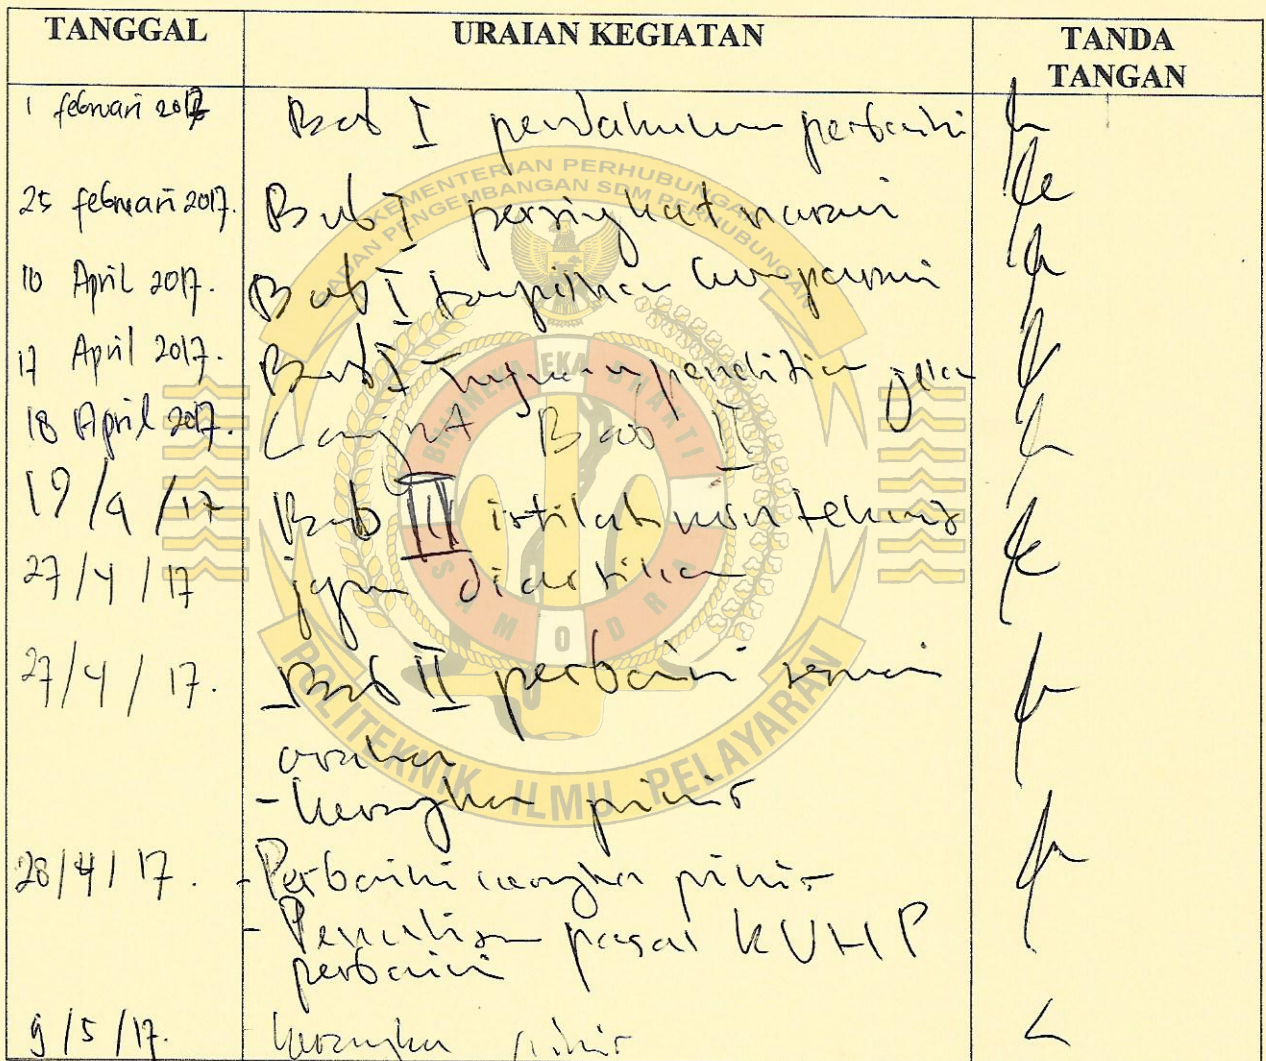 TANGGAL URAIAN KEGIATAN TANDA
TANGAN
1 februari 2017 Bab I pendahuluan perbaiki
25 februari 2017. Bab I persingkat narasi
10 April 2017. Bab I tampilkan
17 April 2017. Bab I Tujuan penelitian jelas
18 April 2017. Lanjut Bab II
19/4/17 Bab III istilah teknis
27/4/17 diartikan
27/4/17. Bab II perbaiki sesuai
arahan
- kerangka pikir
28/4/17. - Perbaiki kerangka pikir
- Penulisan pasal KUHP
perbaiki
9/5/17. kerangka pikir
KEMENTERIAN PERHUBUNGAN
BADAN PENGEMBANGAN SDM PERHUBUNGAN
BHINNEKA EKA BHAKTI
SAMODRA
POLITEKNIK ILMU PELAYARAN